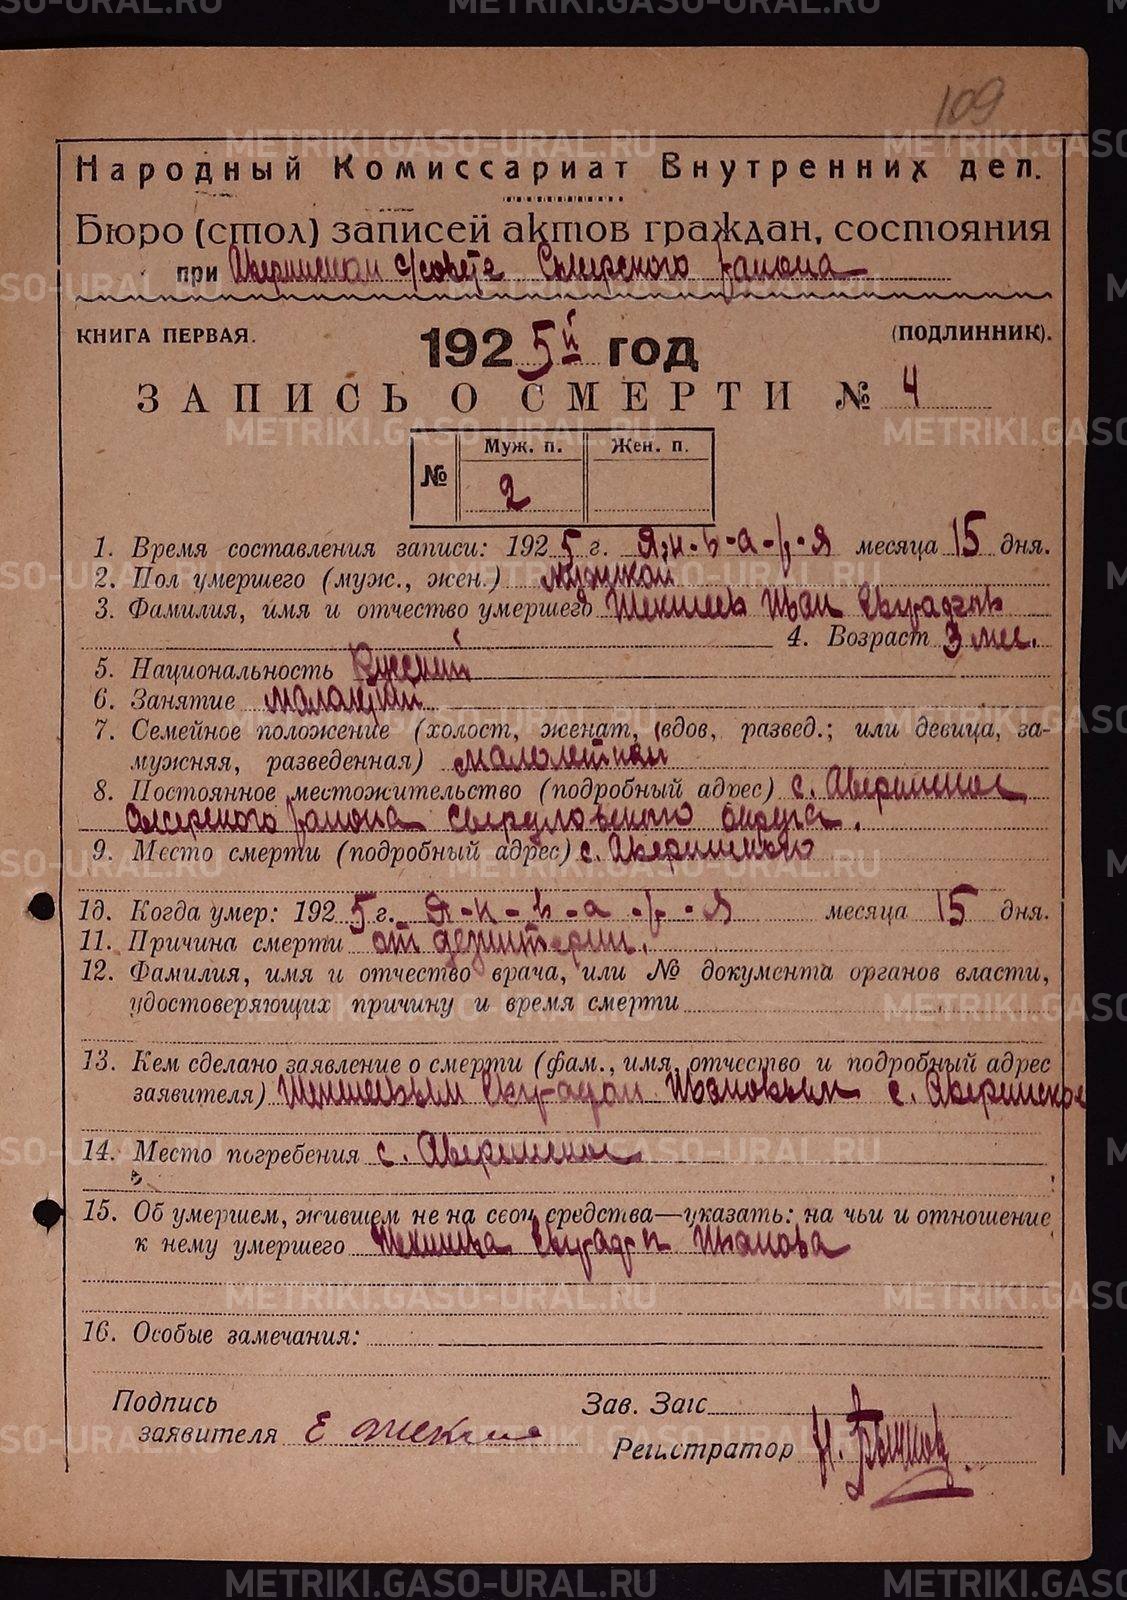 109
Народный Комиссариат Внутренних дел.
Бюро (стол) записей актов граждан, состояния
при Аверинском с/совете Сысертского района
КНИГА ПЕРВАЯ. 1925й год (ПОДЛИННИК).
ЗАПИСЬ О СМЕРТИ № 4
№ Муж. п. Жен. п.
2
1. Время составления записи: 1925 г. Я-н-в-а-р-я месяца 15 дня.
2. Пол умершего (муж., жен.) мужской
3. Фамилия, имя и отчество умершего Иван
4. Возраст 3 мес.
5. Национальность Русский
6. Занятие
7. Семейное положение (холост, женат, вдов, развед.; или девица, за-
мужняя, разведенная) малолетний
8. Постоянное местожительство (подробный адрес) с. Аверинское
района Свердловского округа.
9. Место смерти (подробный адрес) с. Аверинского
10. Когда умер: 1925 г. Я-н-в-а-р-я месяца 15 дня.
11. Причина смерти от дезинтерии.
12. Фамилия, имя и отчество врача, или № документа органов власти,
удостоверяющих причину и время смерти
13. Кем сделано заявление о смерти (фам., имя, отчество и подробный адрес
заявителя) Ивановым с. Аверинское
14. Место погребения с. Аверинское
15. Об умершем, жившем не на свои средства—указать: на чьи и отношение
к нему умершего Иванова
16. Особые замечания:
Подпись Зав. Загс
заявителя Е
Регистратор Н.
METRIKI.GASO-URAL.RU